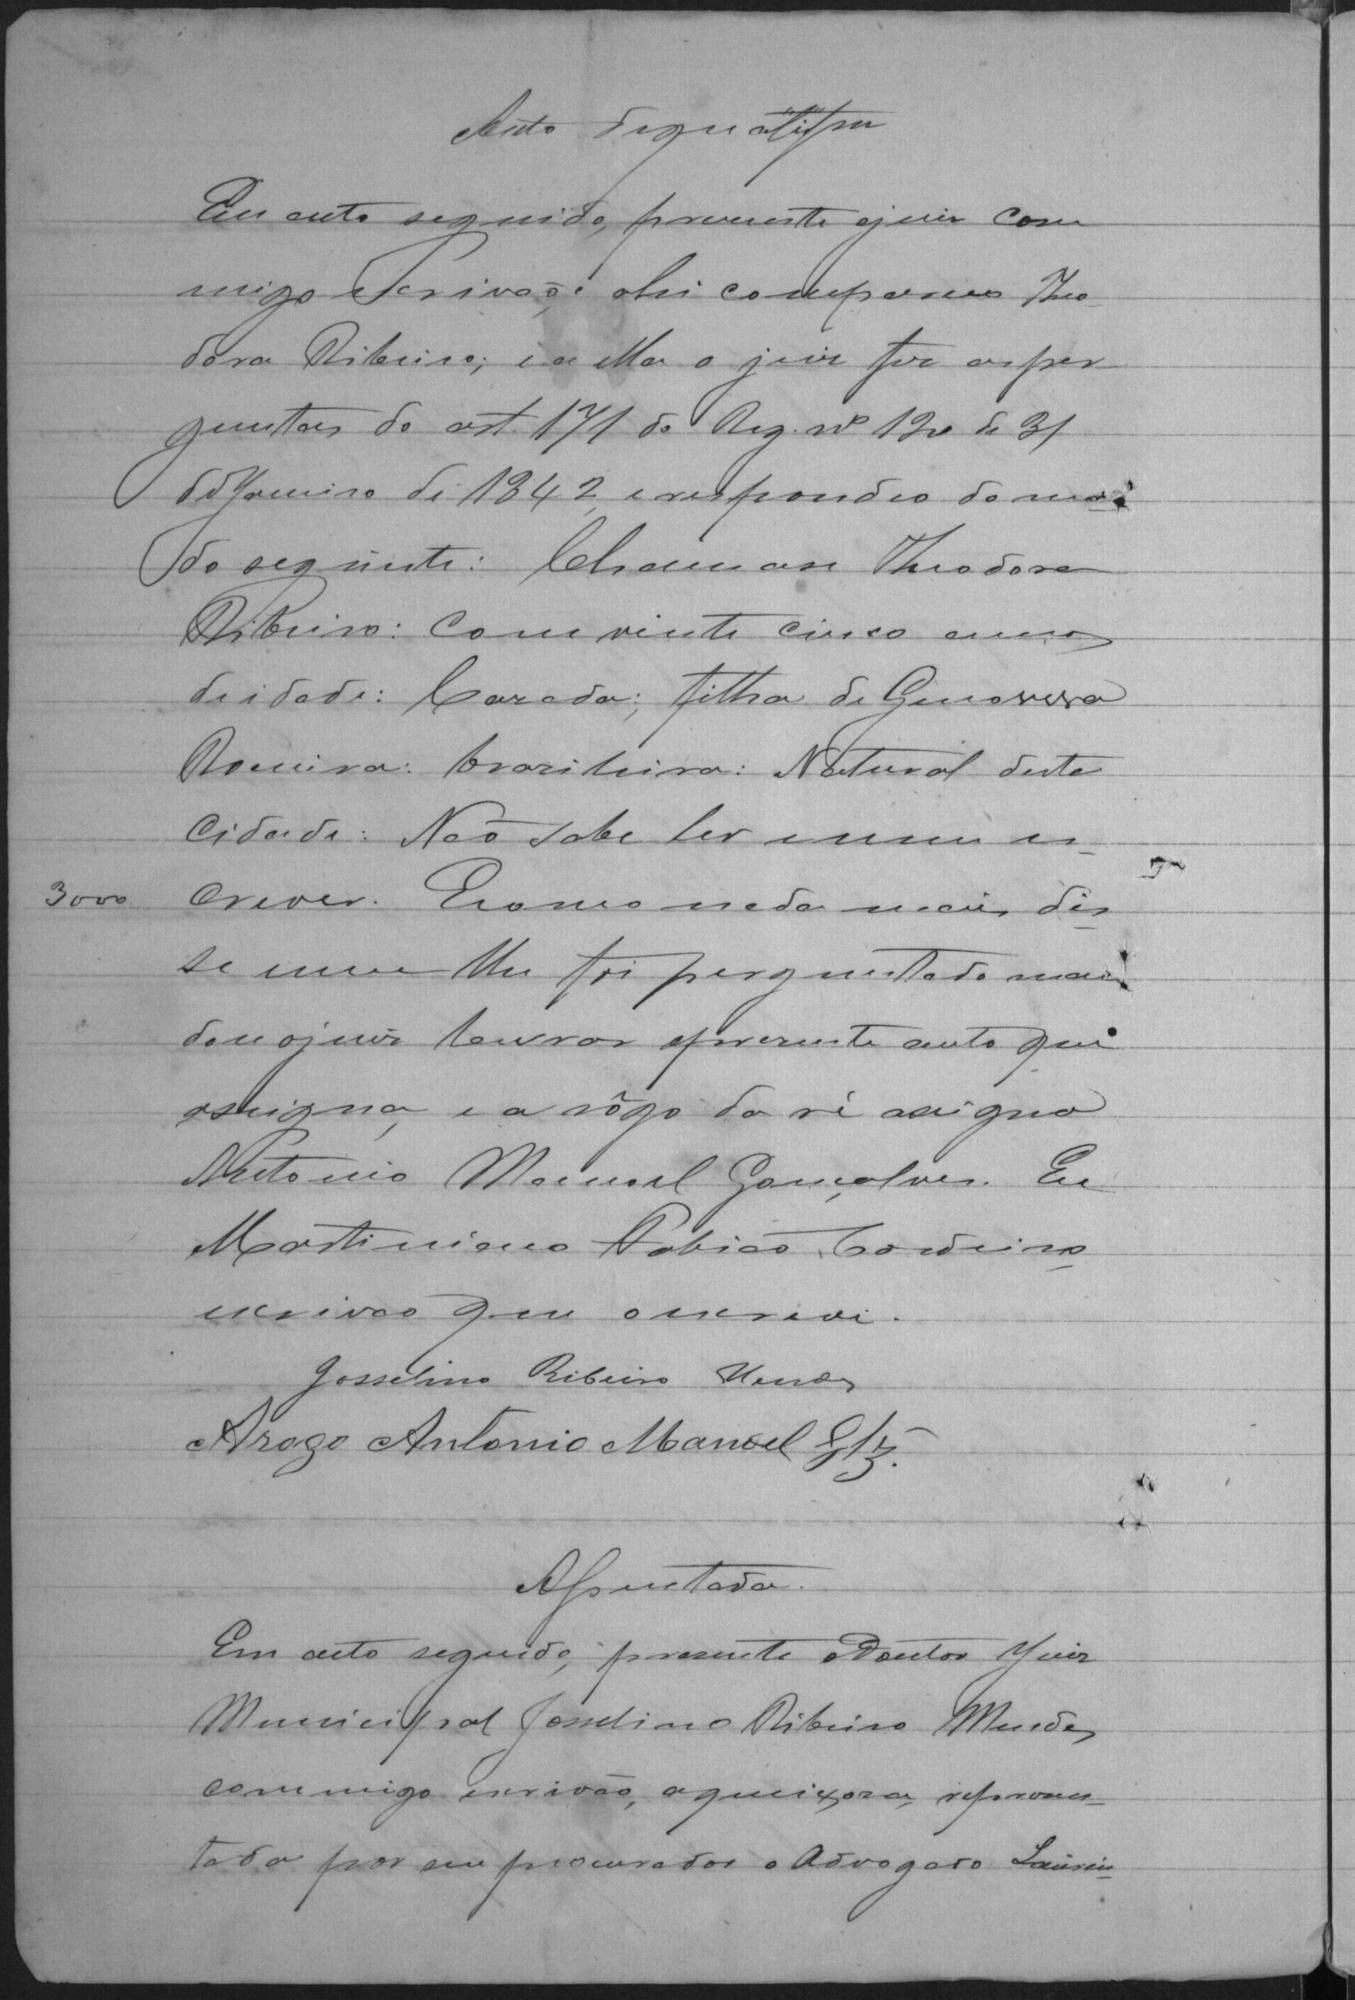 Auto de qualif.
Em acto seguido, presente o juiz com
migo Escrivão, ahi compareceo Theo
dora Ribeiro; e a ella o juiz fez as per
guntas do art. 171 do Reg. nº 120 de 31
de Janeiro de 1842, e respondeo do mo
do seguinte: Chamar-se Theodora
Ribeiro: Com vinte cinco annos
de idade: Cazada; filha de Genoveva
Romeira: brazileira: Natural desta
Cidade: Não sabe ler e nem es-
3000 crever. E como nada mais dis
se nem lhe foi perguntado man
dou o juiz lavrar o presente auto que
assigna, e a rôgo da ré assigna
Antonio Manoel Gonçalves. Eu
Martiniano Cordeiro
escrivão que o escrevi.
Josselino Ribeiro Mendes
Arogo Antonio Manoel Glz.
Assentada.
Em acto seguido, presente o Doutor Juiz
Municipal Josselino Ribeiro Mendes
commigo escrivão, a queixosa, represen-
tada por seu procurador o Advogado Laurin-